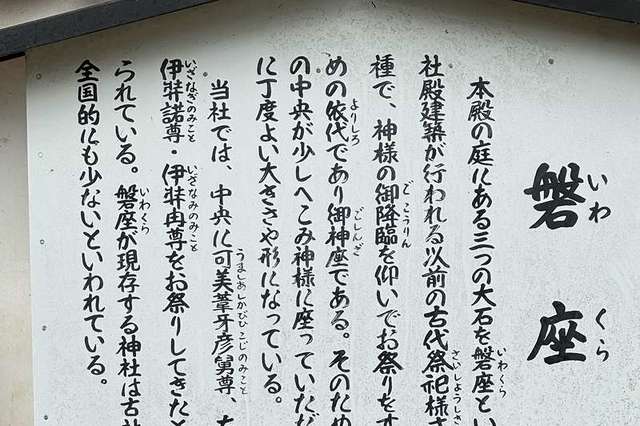 磐座
いわくら
本殿の庭にある三つの大石を磐座とい
いわくら
社殿建築が行われる以前の古代祭祀様
さいしようしき
種で、神様の御降臨を仰いでお祭りをす
ごこうりん
めの依代であり御神座である。そのため
よりしろ
ごしんざ
の中央が少しへこみ神様に座っていただ
に丁度よい大きさや形になっている。
当社では、中央に可美葦牙彦舅尊、
うましあしかびひこじのみこと
伊弉諾尊・伊弉冉尊をお祭りしてきたと
いざなぎのみこと
いざなみのみこと
られている。磐座が現存する神社は古社
いわくら
全国的にも少ないといわれている。